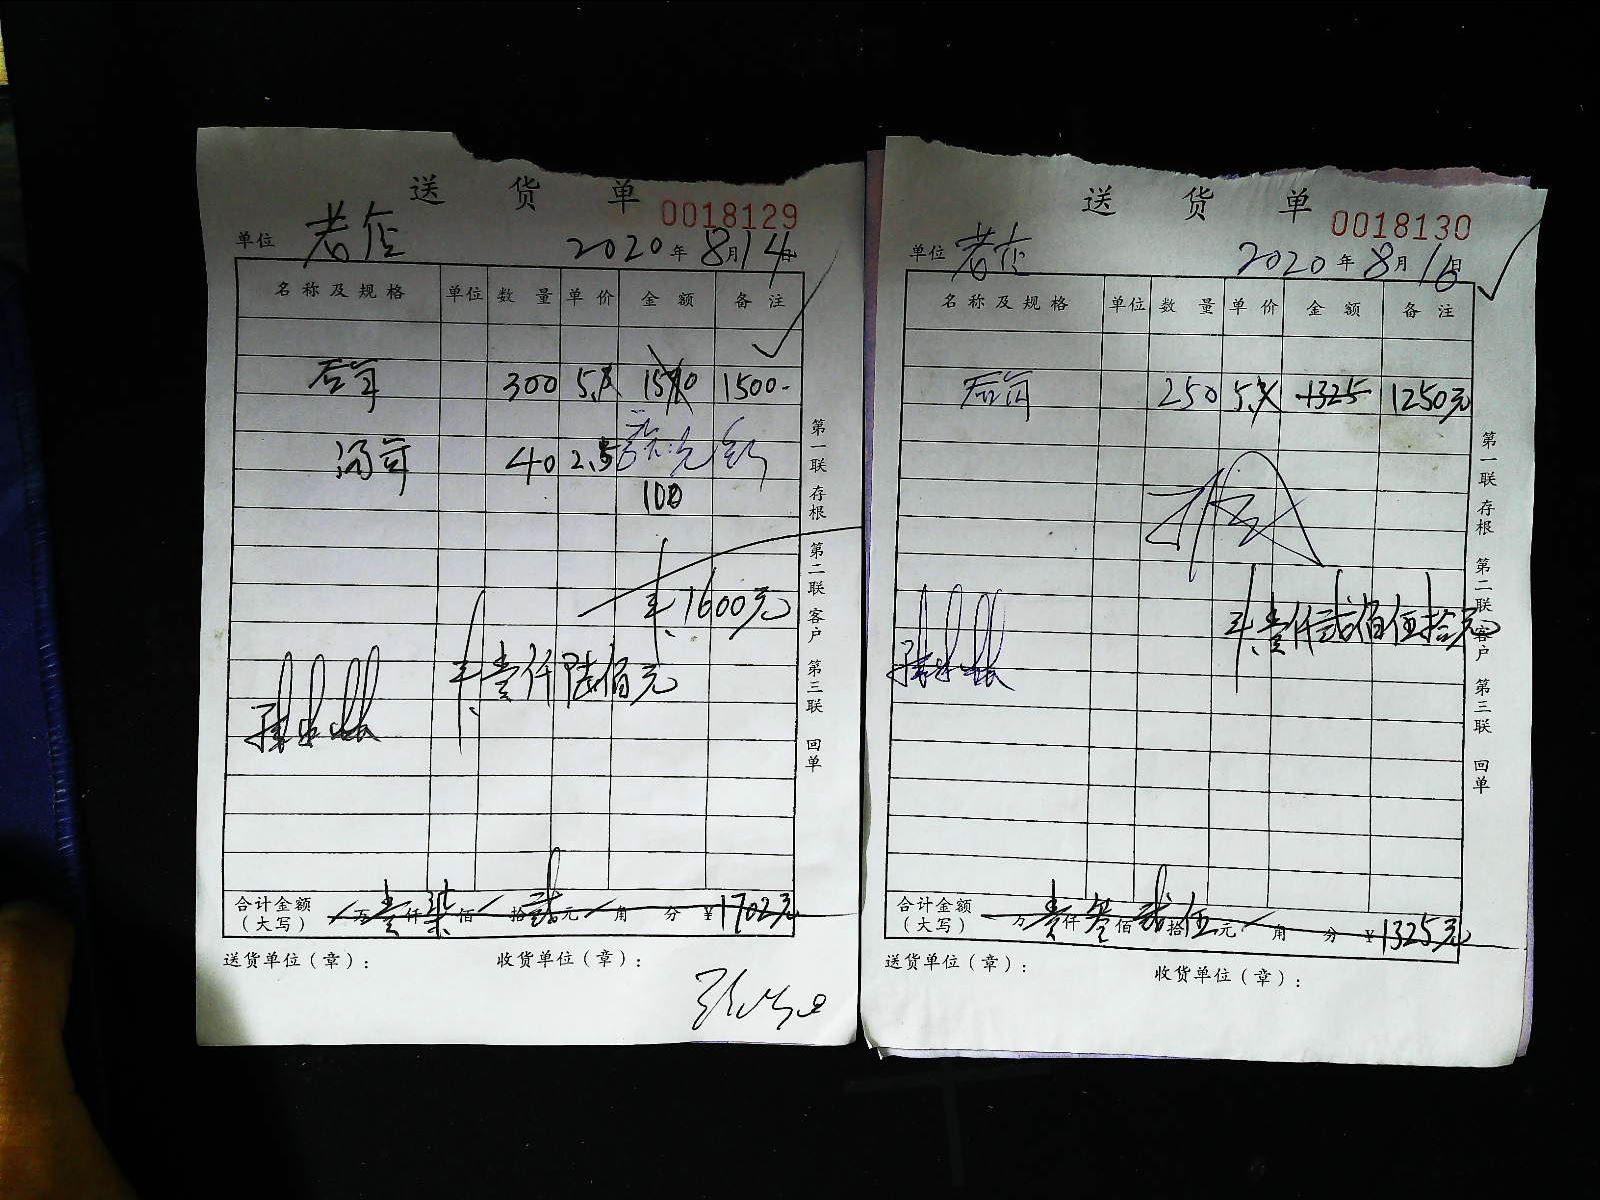 送 货 单
0018129
单位 老店 2020年8月14日
名称及规格 单位 数量 单价 金额 备注
300 5. 1500-
40 2.5
100
¥1600元
壹仟陆佰元
第一联 存根 第二联 客户 第三联 回单
合计金额(大写) 万壹仟柒佰 拾贰元 角 分 ¥1702元
送货单位(章): 收货单位(章):
送 货 单
0018130
单位 老店 2020年8月16日
名称及规格 单位 数量 单价 金额 备注
250 5. 1325 1250元
壹仟贰佰伍拾元
第一联 存根 第二联 客户 第三联 回单
合计金额(大写) 万壹仟叁佰贰拾伍元 角 分 ¥1325元
送货单位(章): 收货单位(章):